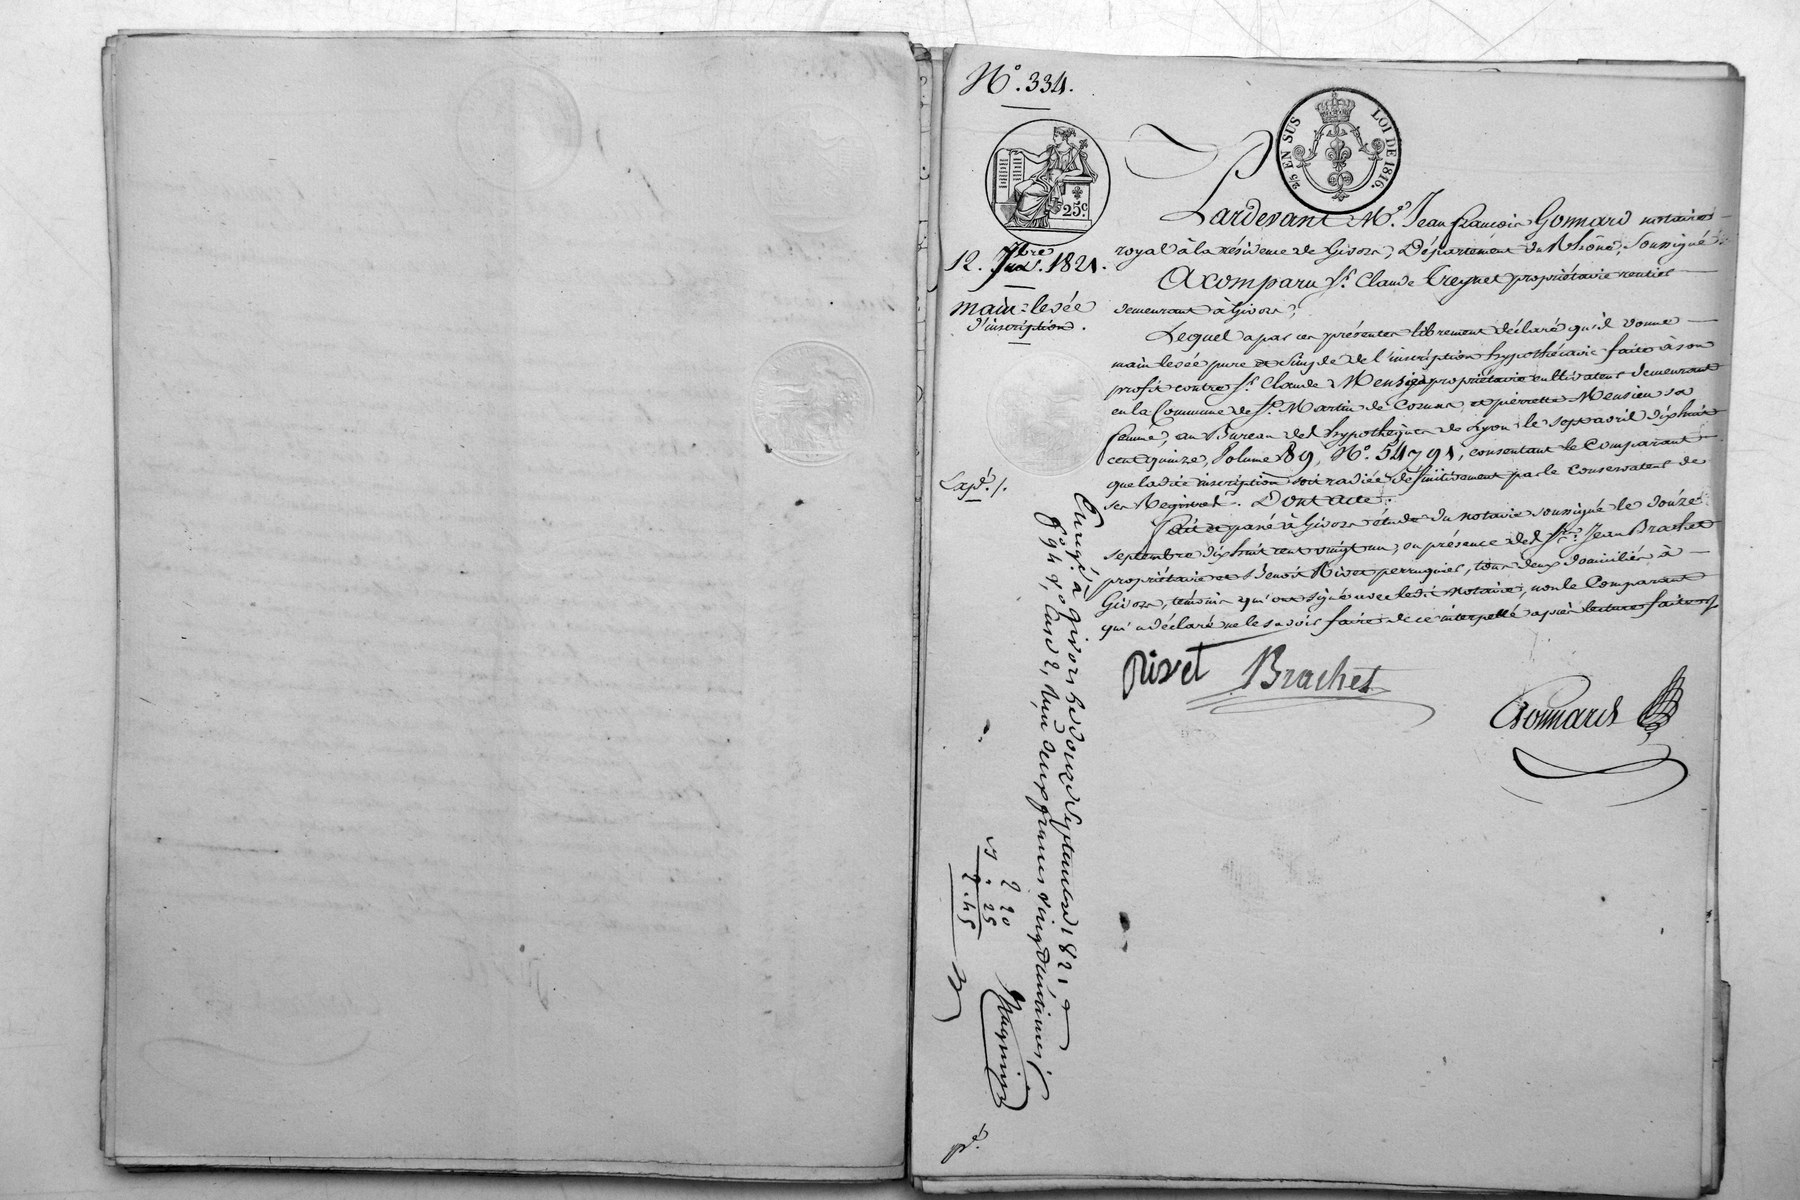 N.° 334.
2/5 EN SUS LOI DE 1816.
25c.
12. 7bre 1821.
main-levée
d'inscription.
Expé. 1.
Pardevant Me. Jean françois Gonnard notaire
royal à la résidence de Givors, Département du Rhône, Soussigné.
A comparu Sr. Claude Treynet propriétaire rentier
demeurant à Givors;
Lequel a par ces présentes librement déclaré qu'il donne
main levée pure et simple de l'inscription hypothécaire faite à son
profit contre Sr. Claude Mensier propriétaire cultivateur demeurant
en la Commune de St. Martin de Cornas, et pierrette Mensier sa
femme, au Bureau des hypothèques de Lyon, le sept avril dix huit
cent quinze, Volume 89, N.° 54791, consentant le Comparant
que ladite inscription soit radiée définitivement par le conservateur de
ses Registres. Dont acte.
fait et passé à Givors étude du notaire soussigné le douze
septembre dix huit cent vingt un, en présence des Srs. Jean Brachet
propriétaire et Benoit Rivet perruquier, tous deux domiciliés à
Givors, témoins qui ont signé avec ledit notaire, non le Comparant
qui a déclaré ne le savoir faire de ce interpellé après lecture faite
Rivet Brachet
Gonnard
Enregé. à Givors le douze Septembre 1821
f° 94 v° Case 2, Reçu deux francs vingt centimes
2 20
25
2.45